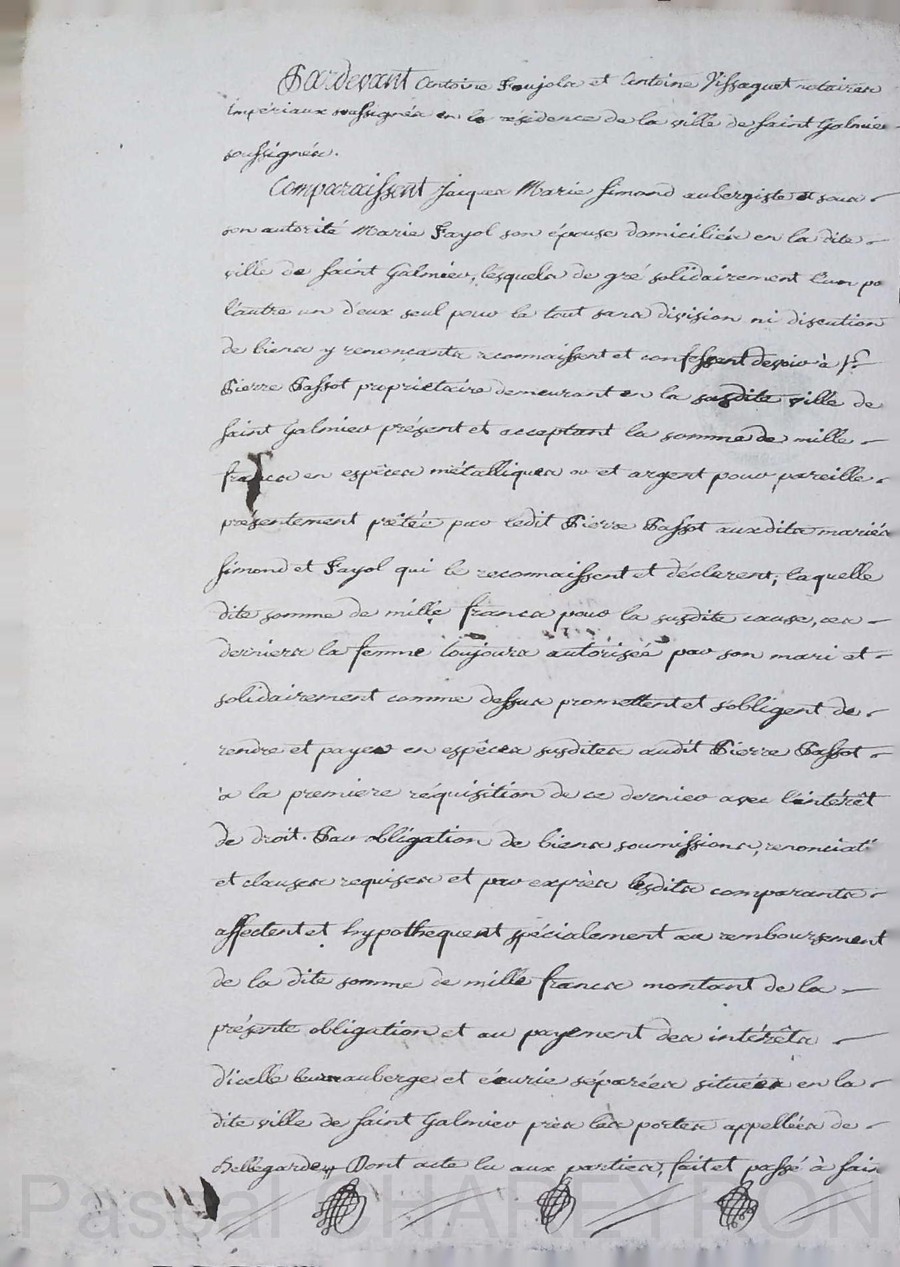 Pardevant Antoine Poujola et Antoine Vissaguet notaires
impériaux soussignés en la résidence de la ville de Saint Galmier
soussignés.
Comparaissent Jacques Marie Simond aubergiste et sous
son autorité Marie Fayol son épouse domiciliés en la dite
ville de Saint Galmier, lesquels de gré solidairement l'un po
l'autre un d'eux seul pour le tout sans division ni discution
de biens y renoncants reconnaissent et confessent devoir à Sr
Pierre Passot propriétaire demeurant en la susdite ville de
Saint Galmier présent et acceptant la somme de mille
francs en espèces métalliques or et argent pour pareille
présentement prêtée par ledit Pierre Passot auxdits mariés
Simond et Fayol qui le reconnaissent et déclarent, laquelle
dite somme de mille francs pour la susdite cause, ces
derniers la femme toujours autorisée par son mari et
solidairement comme dessus promettent et s'obligent de
rendre et payer en espèces susdites audit Pierre Passot
à la premiere réquisition de ce dernier avec l'intérêt
de droit. Par obligation de biens soumissions, renonciat
et clauses requises et par exprès lesdits comparants
affectent et hypothequent spécialement au remboursement
de la dite somme de mille francs montant de la
présente obligation et au payement des intérêts
d'icelle leurs auberge et écurie séparées situées en la
dite ville de Saint Galmier près les portes appellées de
Bellegarde, Dont acte lu aux parties, fait et passé à Sain
Pascal CHAREYRON